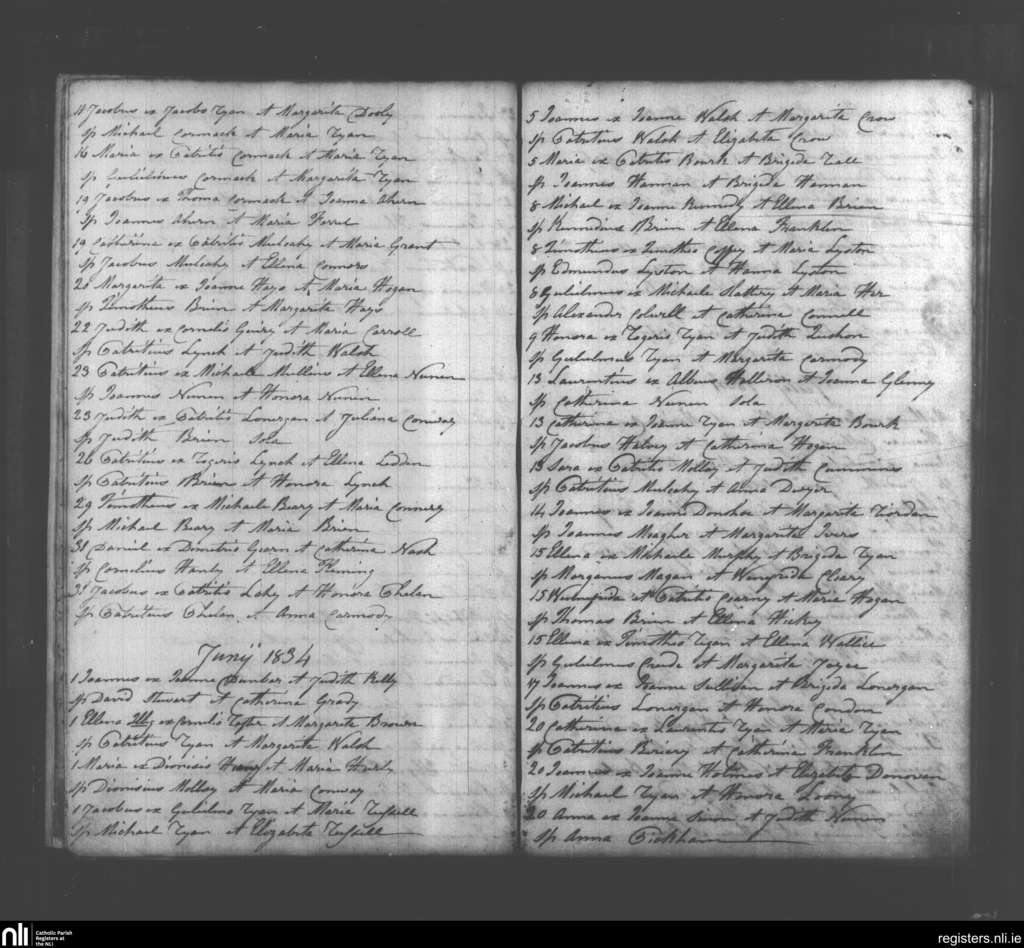 11 Jacobus ex Jacobo Ryan et Margarita Dooly
Sp Michael Cormack et Maria Ryan
16 Maria ex Patritio Cormack et Maria Ryan
Sp Gulielmus Cormack et Margarita Ryan
19 Jacobus ex Thoma Cormack et Joanna Ahern
Sp Joannes Ahern et Maria
19 Catherina ex Patritio Mulcahy et Maria Grant
Sp Jacobus Mulcahy et Ellena Connors
20 Margarita ex Joanne Hays et Maria Hogan
Sp Timotheus Brien et Margarita Hays
22 Judith ex Cornelio Guiry et Maria Carroll
Sp Patritius Lynch et Judith Walsh
23 Patritius ex Michaele Mullins et Ellena Nunen
Sp Joannes Nunen et Honora Nunen
23 Judith ex Patritio Lonergan et Juliana Conway
Sp Judith Brien Sola
26 Patritius ex Rogerio Lynch et Ellena Ledden
Sp Patritius OBrien et Honora Lynch
29 Timotheus ex Michaele Beary et Maria Connery
Sp Michael Beary et Maria Brien
31 Daniel ex Demetrio et Catherina Nash
Sp Cornelius Hanly et Ellena Fleming
31 Jacobus ex Patritio Lahy et Honora Phelan
Sp Patritius Phelan et Anna Carmody
Junij 1834
1 Joannes ex Joanne Dunbar et Judith Kelly
Sp David Stewart et Catherina Grady
1 Ellena ex Cornelio et Margarita Brown
Sp Patritius Ryan et Margarita Walsh
1 Maria ex Dionisio et Maria Hurly
Sp Dionisius Molloy et Maria Conway
1 Jacobus ex Gulielmo Ryan et Maria
Sp Michael Ryan et Elizabeta
5 Joannes ex Joanne Walsh et Margarita Crow
Sp Patritius Walsh et Elizabeta Crow
5 Maria ex Patritio Bourk et Brigida
Sp Joannes Hannan et Brigida Hannan
8 Michael ex Joanne Kennedy et Ellena Brien
Sp Kennedius OBrien et Ellena Franklin
8 Timotheus ex Timotheo Coffey et Maria Lyston
Sp Edmundus Lyston et Hanna Lyston
8 Gulielmus ex Michaele Slattery et Maria
Sp Alexander Colwell et Catherina Connell
9 Honora ex Rogerio Ryan et Judith
Sp Gulielmus Ryan et Margarita Carmody
13 Laurentius ex Halloron et Joanna
Sp Catherina Nunen Sola
13 Catherina ex Joanne Ryan et Margarita Bourk
Sp Jacobus et Catherina Hogan
13 Sara ex Patritio Molloy et Judith Cummins
Sp Patritius Mulcahy et Anna Dwyer
14 Joannes ex Joanne Donohoe et Margarita Riordan
Sp Joannes Meagher et Margarita Ivers
15 Ellena ex Michaele Murphy et Brigida Ryan
Sp Morganus Magan et Wenyfrida Cleary
15 ex Patritio Cearny et Maria Hogan
Sp Thomas Brien et Ellena Hickey
15 Ellena ex Timotheo Ryan et Ellena Wallice
Sp Gulielmus et Margarita Joyce
17 Joannes ex Joanne Sullivan et Brigida Lonergan
Sp Patritius Lonergan et Honora Condon
20 Catherina ex Laurentio Ryan et Maria Ryan
Sp Patritius et Catherina Franklin
20 Joannes ex Joanne Holmes et Elizabeta Donovan
Sp Michael Ryan et Honora Loony
20 Anna ex Joanne Simon et Judith Nunen
Sp Anna Pickham
nli
Catholic Parish
Registers at
the NLI
registers.nli.ie